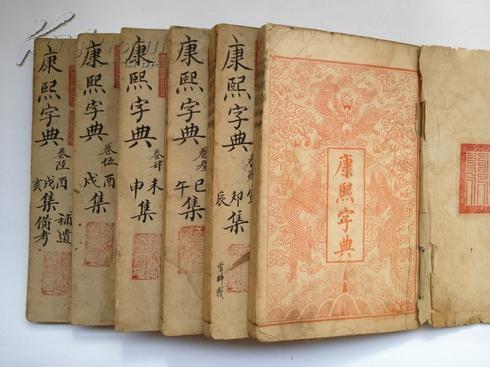 康熙字典
康熙字典
卷貳
寅卯
辰集
康熙字典
卷叁
巳
午集
康熙字典
卷肆
未
申集
康熙字典
卷伍
酉
戌集
康熙字典
卷陸
酉
戌
亥集
補遺
備考